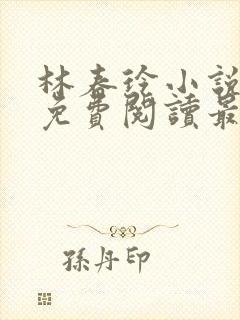 林春徐小說
免費閱讀最
孫丹印